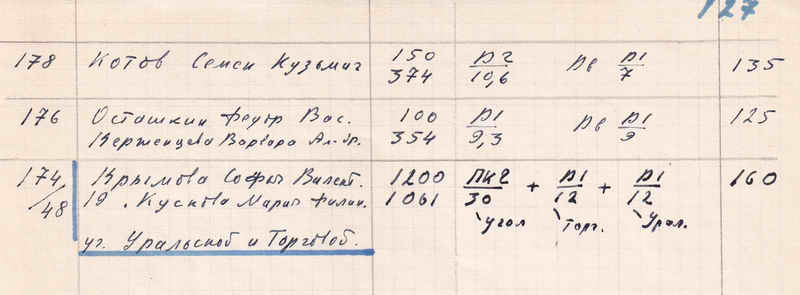 127
178 Котов Семен Кузьмич 150 Д2 Дв Д1 135
374 10,6 7
176 Осташкин Федор Вас. 100 Д1 Дв Д1 125
Керженцева Варвара Ал-др. 354 9,3 9
174 Крымова Софья Валент. 1200 ПК2 + Д1 + Д1 160
/48 19. Кускова Мария Филип. 1061 30 12 12
угол Торг. Урал.
уг. Уральской и Торговой.